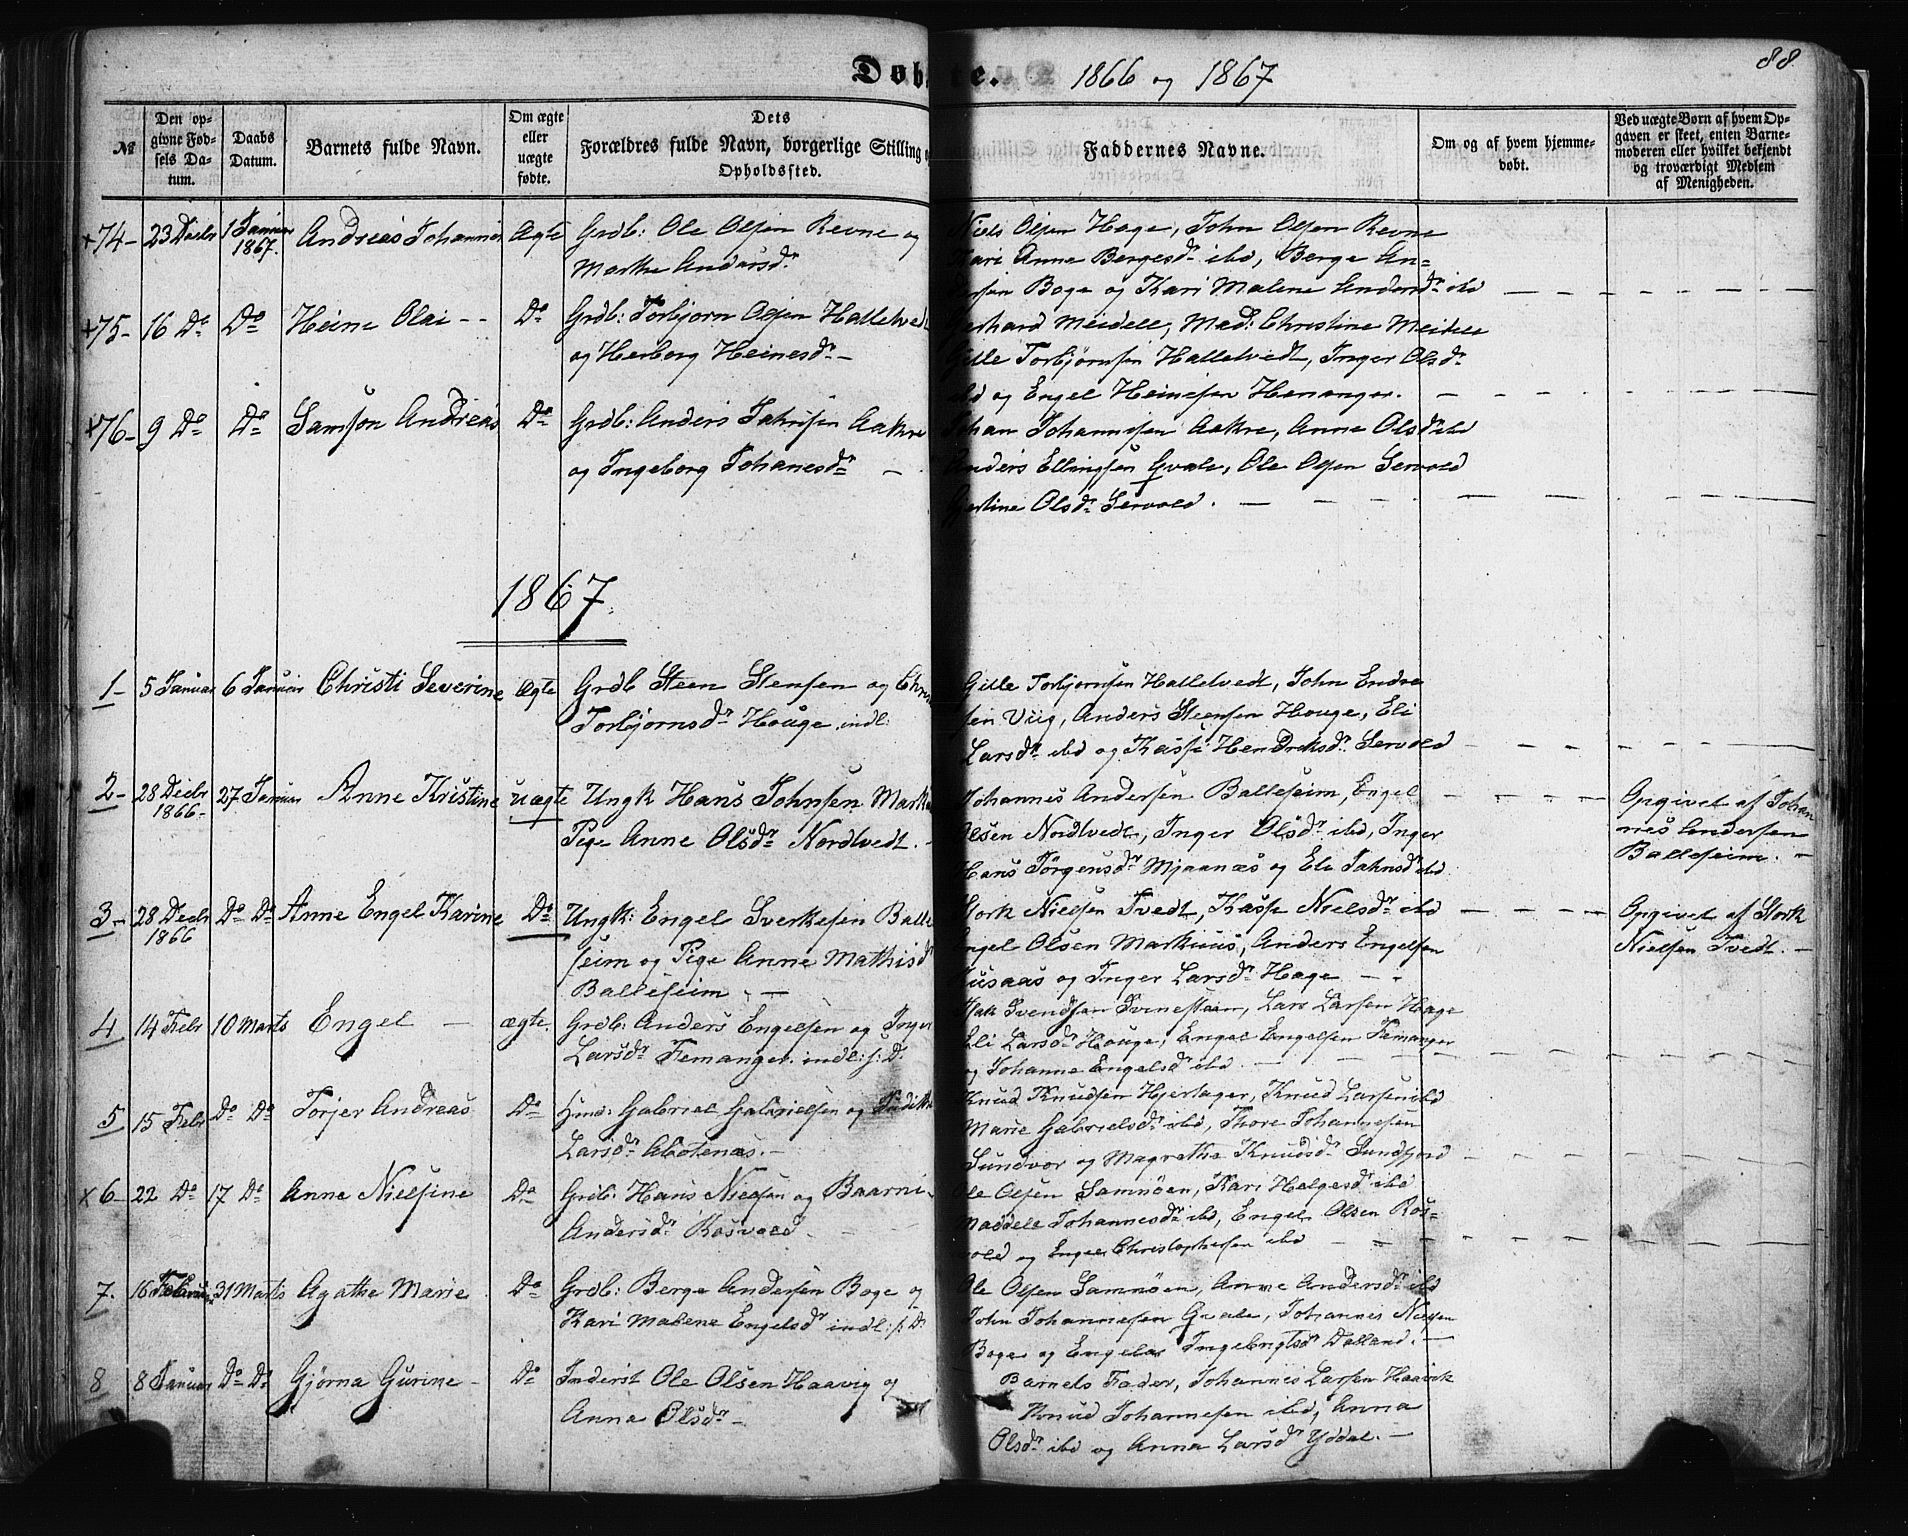 Døbte. 1866 og 1867
88
№
Den opgivne Fødsels Datum.
Daabs Datum.
Barnets fulde Navn.
Om ægte eller uægte fødte.
Dets Forældres fulde Navn, borgerlige Stilling og Opholdssted.
Faddernes Navne.
Om og af hvem hjemmedøbt.
Ved uægte Børn af hvem Opgaven er skeet, enten Barnemoderen eller hvilket bekjendt og troværdigt Medlem af Menigheden.
+74- 23 Decbr 1 Januar 1867. Andreas Johannes Ægte Grdb: Ole Olsen Revne og
Marthe Andersdr
Niels Olsen Hage, John Olsen Revne
Kari Anne Bergesdr ibd, Berge An=
dersen Boge og Kari Malene Andersdr ibd
+75- 16 Do Do Heine Olai -- Do Grdb: Torbjørn Olsen Halletvedt
og Herborg Heinesdr -
Gerhard Meidell, Mad: Christine Meidell
Gille Torbjørnsen Halletvedt, Inger Olsdr
ibd og Engel Heinesen Henanger.
+76- 9 Do Do Samson Andreas Do Grdb: Anders Johnsen Aakre
og Ingeborg Johanesdr -
Johan Johannesen Aakre, Anne Olsdr ibd
Anders Ellingsen Gvale, Ole Olsen Servold
Gjertine Olsdr Servold.
1867.
1- 5 Januar 6 Januar Christi Severine Ægte Grdb Steen Stensen og Chri
Torbjørnsdr Houge indl:
Gille Torbjørnsen Halletvedt, John Endre
sen Viig, Anders Steensen Houge, Eli
Larsdr ibd og Kasse Hendreksdr Servold
2- 28 Decbr 1866- 27 Januar Anne Kristine uægte Ungk Hans Johnsen Mark
Pige Anne Olsdr Nordtvedt.
Johannes Andersen Balleseim, Engel
Olsen Nordtvedt, Inger Olsdr ibd, Inger
Hans Jørgensdr Mjaanæs og Eli Johnsdr ibd
Opgivet af Johan
nes Andersen
Balleseim. -
3- 28 Decbr 1866 Do Do Anne Engel Karine Do Ungk: Engel Sverkesen Balle
seim og Pige Anne Mathisdr
Balleseim. -
Stork Nielsen Tvedt, Kasse Nielsdr ibd
Engel Olsen Markhuus, Anders Engelsen
Husaas og Inger Larsdr Hage - -
Opgivet af Stork
Nielsen Tvedt. -
4 14 Febr 10 Marts Engel - ægte. Grdb: Anders Engelsen og Inger
Larsdr Femanger. indl: f: D.
Isak Svendsen Tvinestøen, Lars Larsen Hage
Eli Larsdr Houge, Engel Engelsen Femanger
og Johanne Engelsdr ibd.
5 15 Febr Do Do Torjer Andreas Do Hmd: Gabriel Gabrielsen og
Larsdr Abotenæs. -
Knud Knudsen Hjertager, Knud Larsen ibd
Marie Gabrielsdr ibd, Thore Johannesen
Sundvor og Magrethe Knudsdr Sundfjord
x6- 22 Do 17 Do Anne Nielsine Do Grdb: Hans Nielsen og Baarni
Andersdr Rosvold.
Ole Olsen Samnøen, Kari Helgesdr ibd
Maddele Johannesdr ibd, Engel Olsen Ros=
vold og Engel Christophersen ibd
7. 16 Februar 31 Marts Agathe Marie Do Grdb: Berge Andersen Boge og
Kari Malene Engelsdr indl: f: D.
Ole Olsen Samnøen, Anne Andersdr ibd
John Johannesen Gvale, Johannes Nielsen
Boge og Engelas Ingebrigtsdr Dalland. -
8 8 Januar Do Do Gjørna Gurine - Do Inderst Ole Olsen Haavig og
Anne Olsdr -
Barnets Fader, Johannes Larsen Haavik
Knud Johannesen ibd, Anna
Olsdr ibd og Anna Larsdr Yddal. -